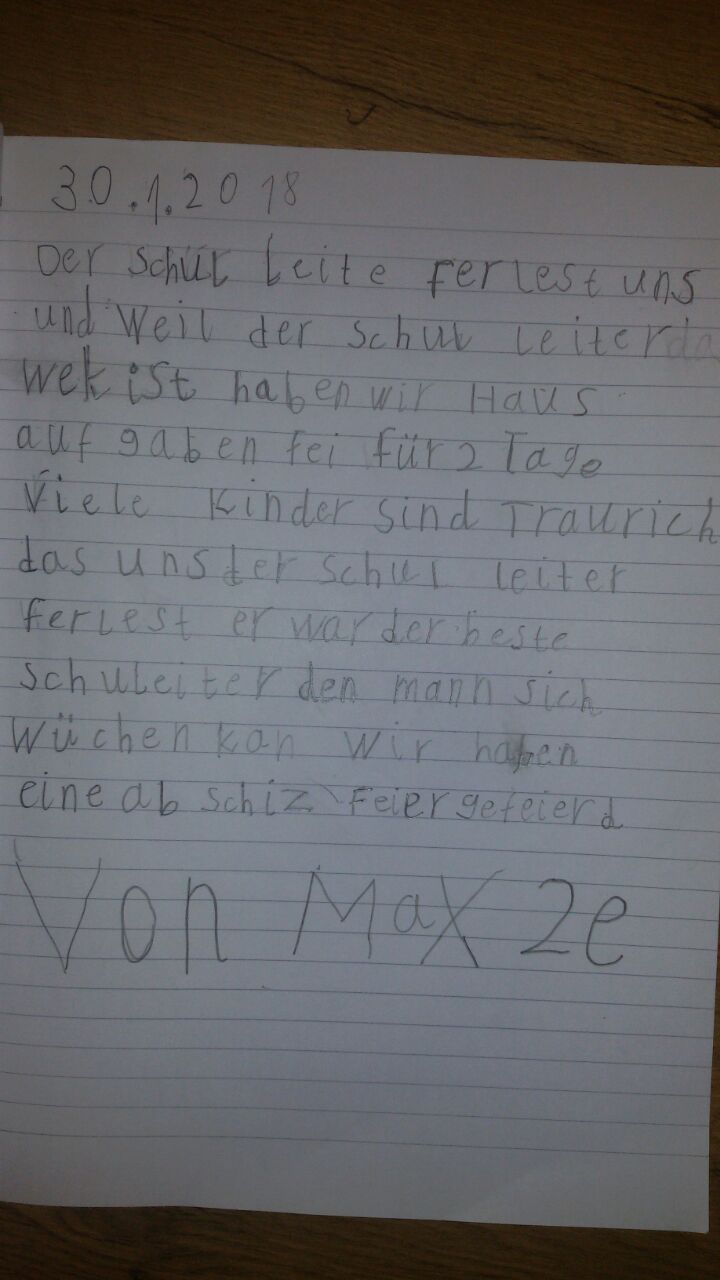 30.1.2018
Der Schul Leite ferlest uns
und Weil der schul leiter da
wek ist haben wir Haus
auf gaben fei für 2 Tage
Viele Kinder sind Traurich
das uns der schul leiter
ferlest er war der beste
schuleiter den mann sich
wüchen kan wir haben
eine ab schiz feier gefeierd
Von Max 2e